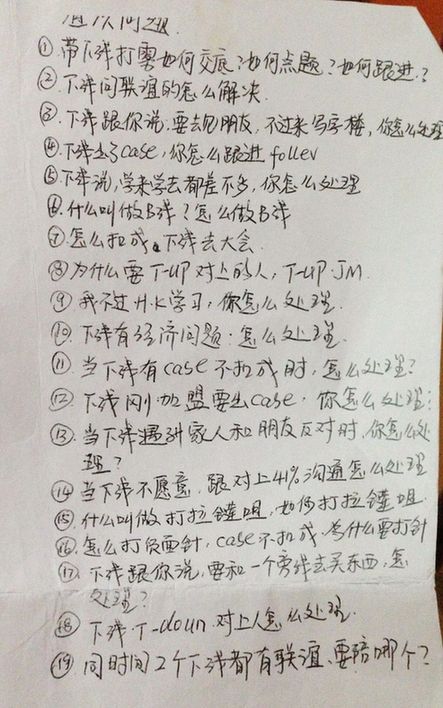 ①带下线打雾如何交底?如何点题?如何跟进?
②下线问联谊的怎么解决.
③下线跟你说,要去见朋友,不过来写字楼,你怎么处理
④下线出了case,你怎么跟进follev
⑤下线说,学来学去都差不多,你怎么处理
⑥什么叫做B线?怎么做B线
⑦怎么扣成下线去大会.
⑧为什么要T-up对上的人,T-up JM.
⑨我不过H.K学习,你怎么处理.
⑩下线有经济问题.怎么处理.
⑪当下线有case不扣成时,怎么处理?
⑫下线刚加盟要出case.你怎么处理:
⑬当下线遇到家人和朋友反对时,你怎么处
理?
⑭当下线不愿意,跟对上41%沟通怎么处理
⑮什么叫做打拉链咀,如何打拉链咀.
⑯怎么打负面针,case不扣成,为什么要打针
⑰下线跟你说,要和一个旁线去买东西,怎
处理?
⑱下线T-doun对上人怎么处理.
⑲同时间2个下线都有联谊、要陪哪个?